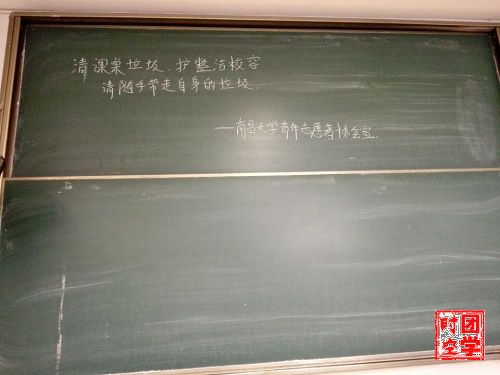 清课桌垃圾,护整洁校容
请随手带走自身的垃圾.
——南昌大学青年志愿者协会宣